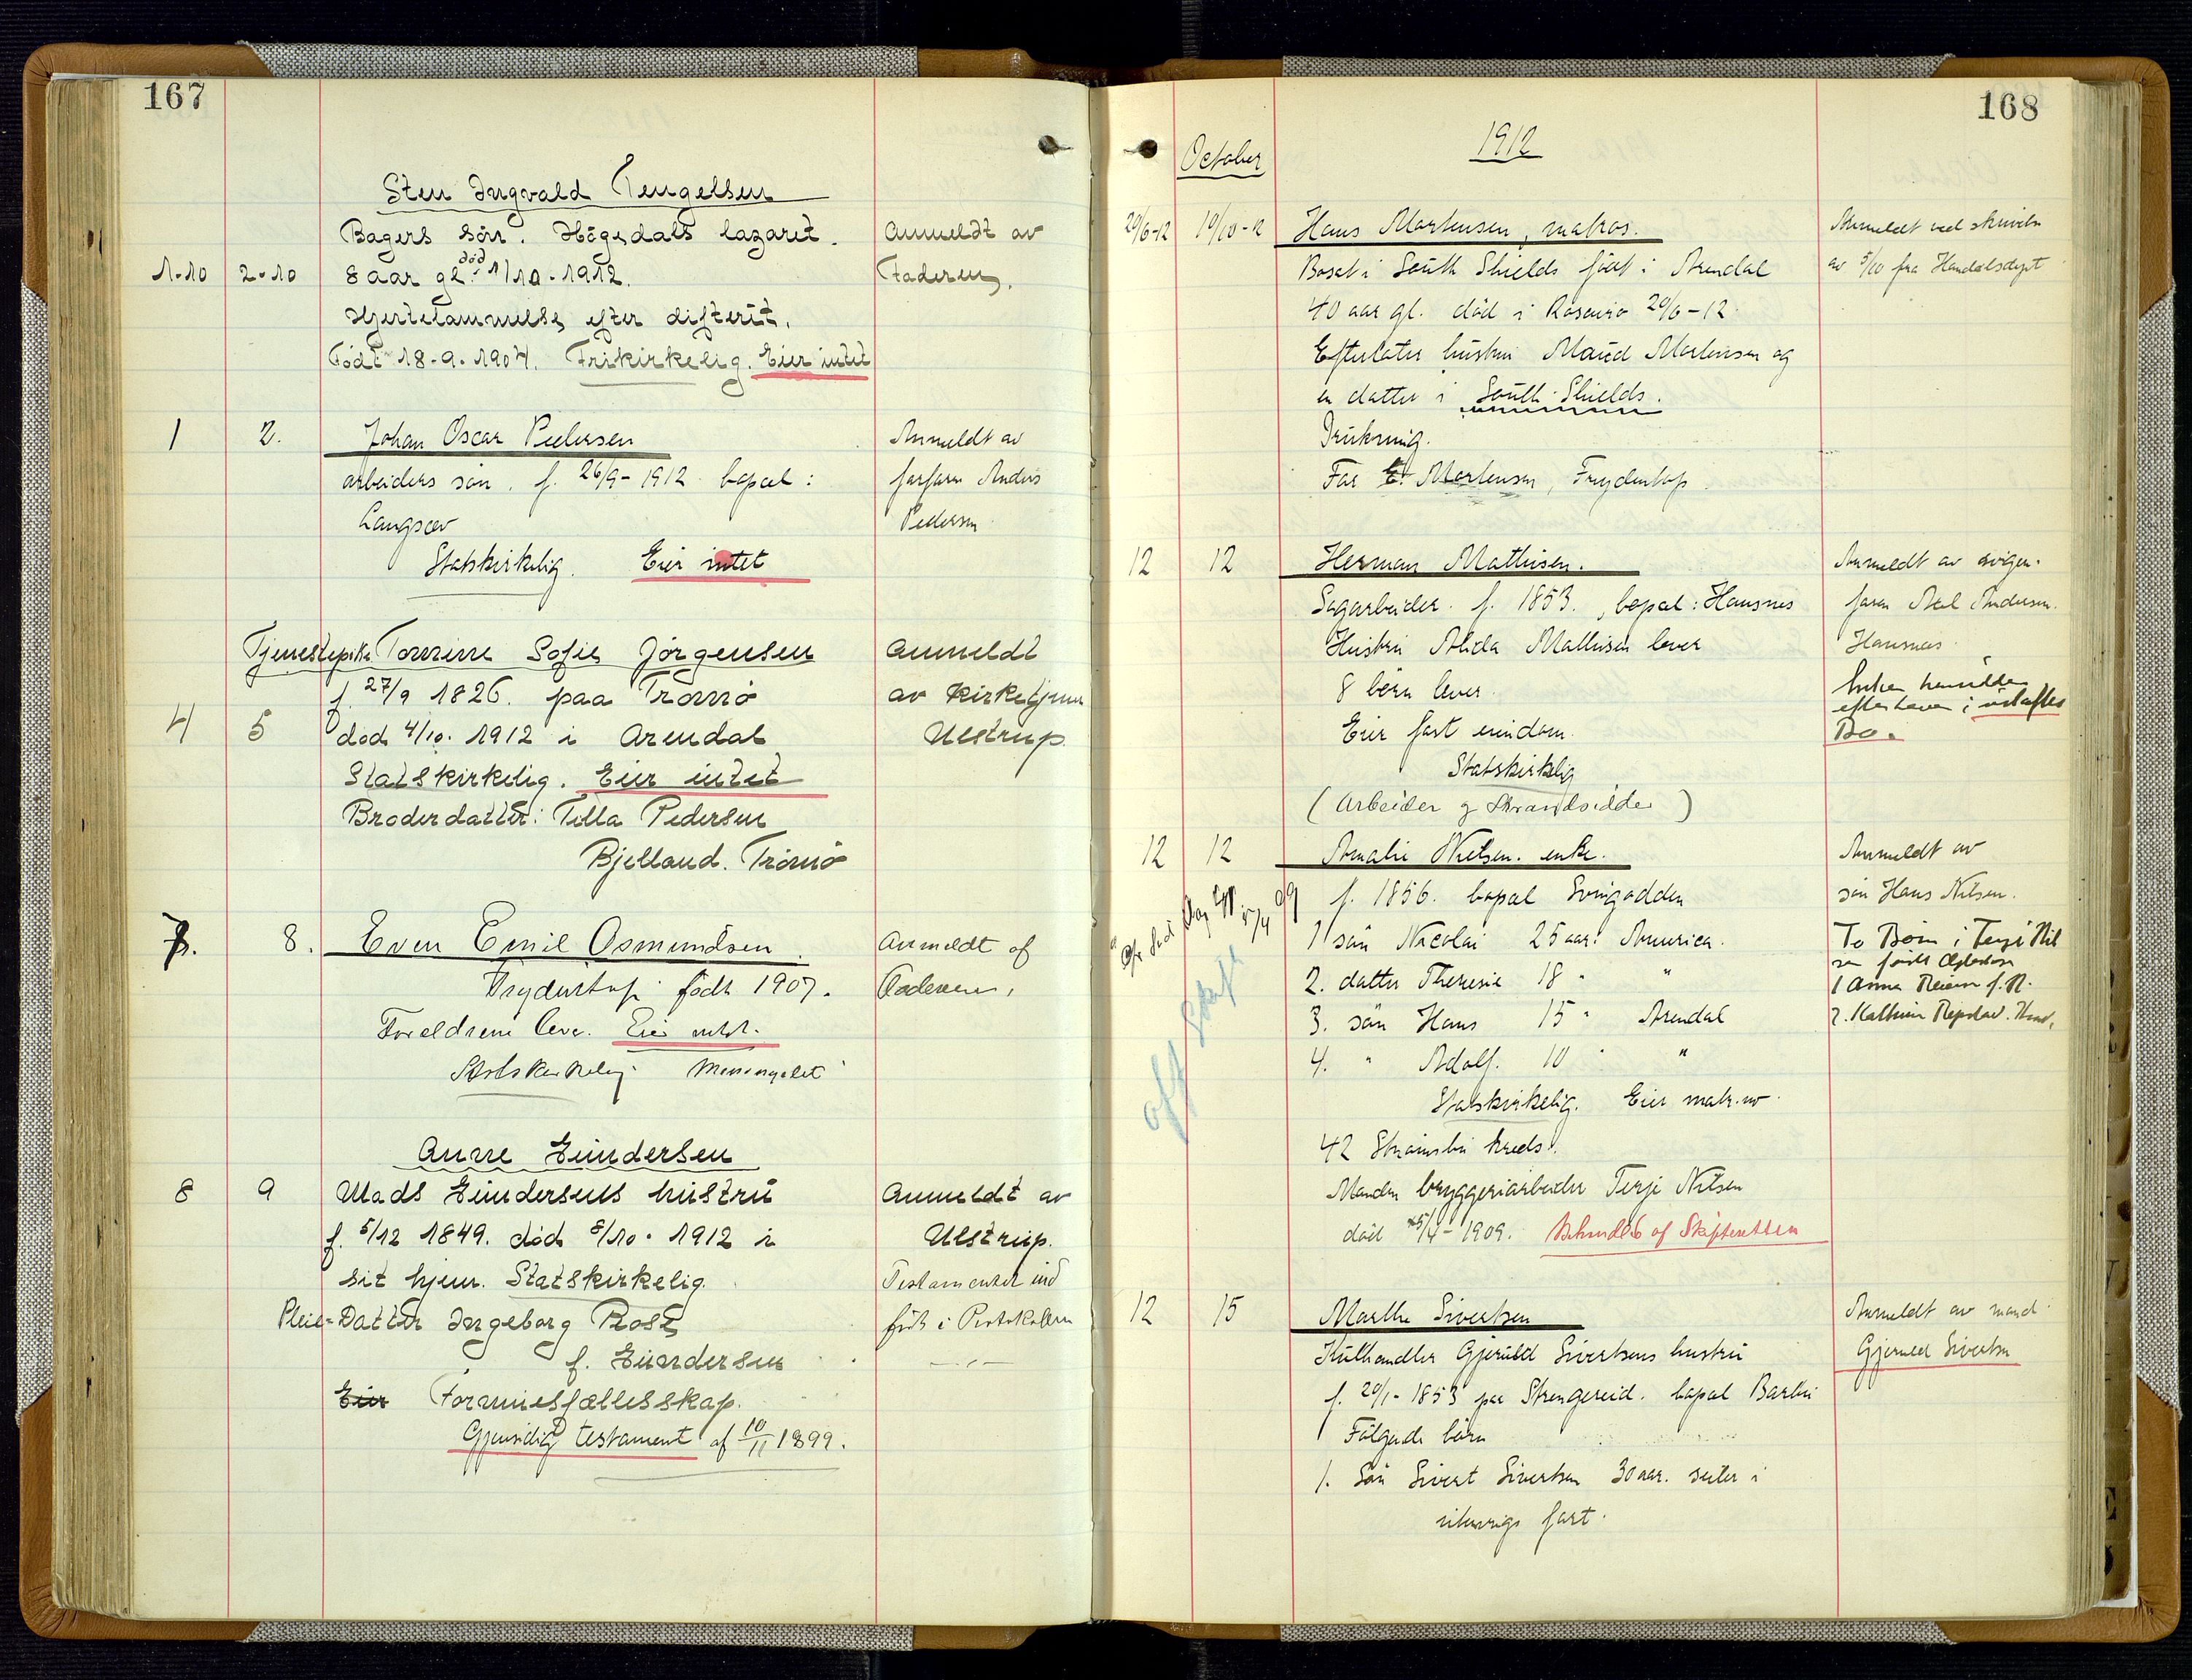 167
Sten Ingvald Tengelsen
Bagers sön. Högedals lazaret. Anmeldt av
1-10 2-10 8 aar gl. död 1/10-1912. Faderen.
Hjertelammelse efter difterit.
Född 18-9-1904. Frikirkelig. Eier intet
1 2. Johan Oscar Pedersen Anmeldt av
arbeiders sön. f. 26/9-1912 bopæl: farfaren Anders
Langsæv Pedersen
Statskirkelig. Eier intet
Tjenestepike Tomine Sofie Jörgensen Anmeldt
f. 27/9 1826. paa Tromö av Kirketjener
4 5 död 4/10. 1912 i Arendal Ulstrup.
Statskirkelig. Eier intet
Broderdatter: Tilla Pedersen
Bjelland. Tromö
7. 8. Even Emil Osmundsen Anmeldt af
født 1907. Faderen,
Foreldrene lever. Eier intet.
Statskirkelig
Anne Gundersen
8 9 Mads Gundersens hustru Anmeldt av
f. 5/12 1849. död 8/10. 1912 i Ulstrup.
sit hjem. Statskirkelig. Testamentet ind
Pleie-Datter Ingeborg Rost ført i Protokollen
f. Gundersen
Eier Formuesfællesskap.
Gjensidig testament af 10/11 1899.
168
October 1912
20/6-12 10/10-12 Hans Mortensen, matros. Anmeldt ved skrivelse
Bosat i South Shields född i Arendal av 5/10 fra Handelsdept
40 aar gl. död i Rosario 20/6-12
Efterlater hustru Maud Mortensen og
en datter i South Shields.
Drukning.
Far E. Mortensen,
12 12 Herman Mathisen. Anmeldt av sviger-
Sagarbeider. f. 1853., bopæl: Hausnes faren Andersen.
Hustru Alida Mathisen lever Hausnes
8 börn lever. Enken hensidder
Eier fast eiendom. efter loven i uskiftet
Statskirkelig Bo.
(Arbeider og Strandsidder)
12 12 Amalie Nilsen. enke. Anmeldt av
f. 1856. bopæl Svingodden sön Hans Nilsen.
1 sön Nicolai 25 aar. America. To Börn i Terje Nil
2. datter Theresie 18 " " sen første Ægteskab
3. sön Hans 15 " Arendal 1 Anna f. N.
4. " Adolf. 10 " " 2. Kathrine
off skifte
Statskirkelig. Eier matr. nr.
42 Strömsbu kreds.
Manden bryggeriarbeider Terje Nilsen
död 25/4-1909. Behandles af Skifteretten
12 15 Marthe Sivertsen Anmeldt av mand
Kulhandler Gjeruld Sivertsens hustru Gjeruld Sivertsen
f. 20/1-1853 paa Strengereid. bopæl Barbu
Fölgende börn
1. Sön Sivert Sivertsen 30 aar. seiler i
utenrigs fart.